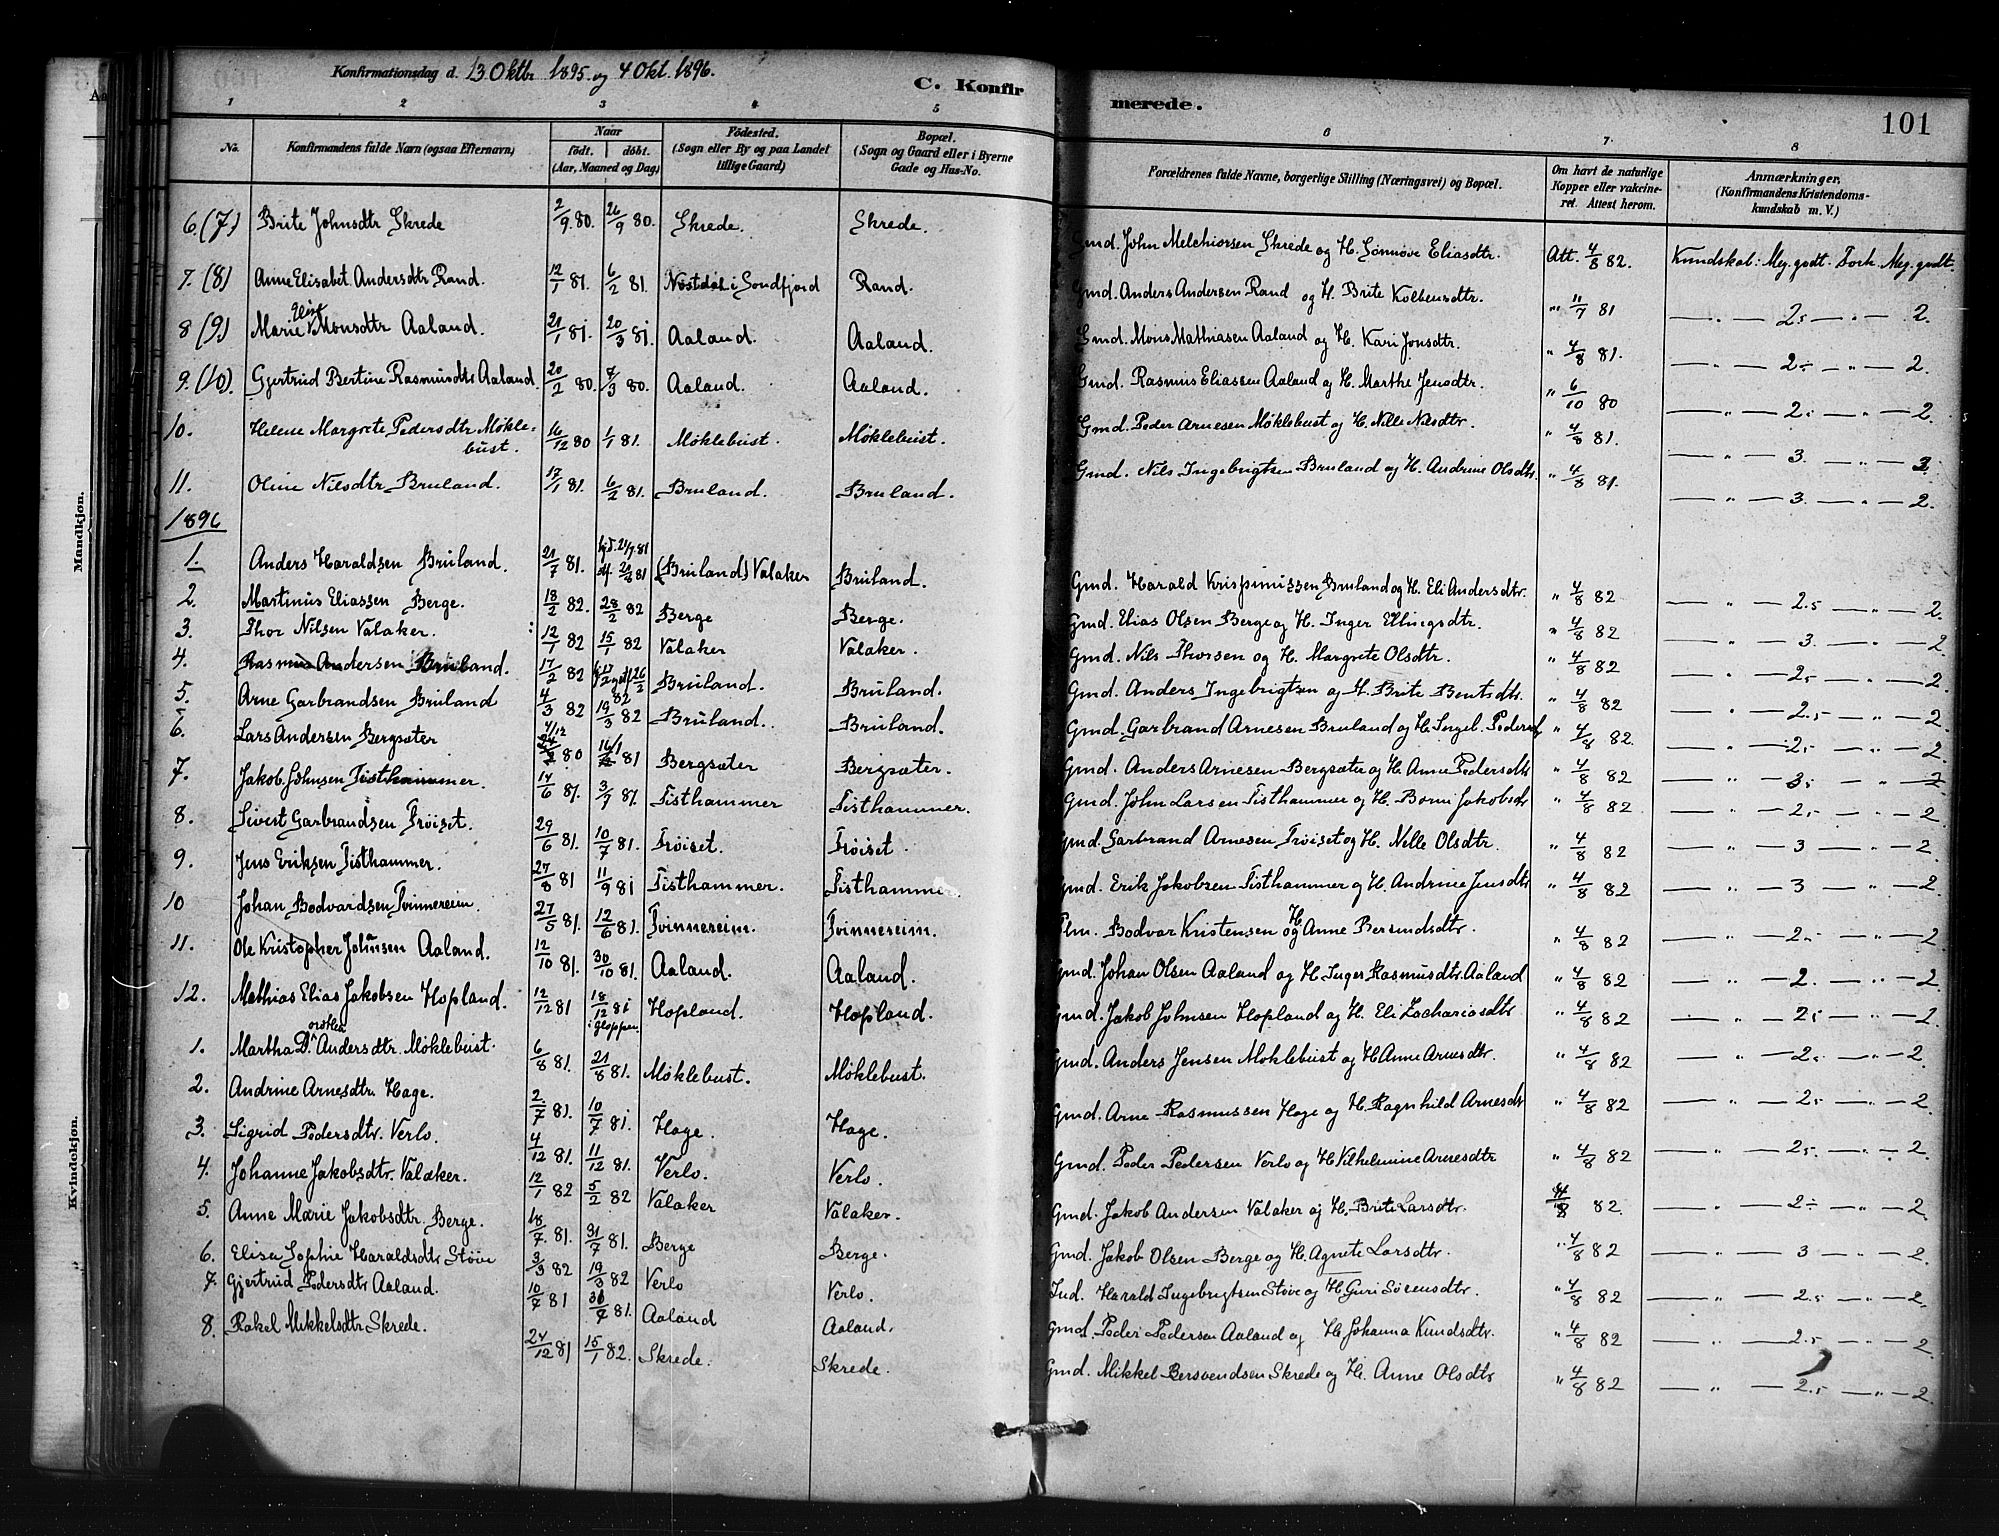 Konfirmationsdag d. 13 Oktbr 1895 og 4 Okt. 1896.
C. Konfirmerede.
101
1 2 3 4 5 6 7 8
No. Konfirmandens fulde Navn (ogsaa Efternavn) Naar født. døbt. (Aar, Maaned og Dag) Fødested. (Sogn eller By og paa Landet tillige Gaard) Bopæl. (Sogn og Gaard eller i Byerne Gade og Hus-No. Forældrenes fulde Navne, borgerlige Stilling (Næringsvei) og Bopæl. Om havt de naturlige Kopper eller vakcineret. Attest herom. Anmærkninger. (Konfirmandens Kristendomskundskab m. V.)
6. (7) Brite Johnsdtr Skrede 2/9 80. 26/9 80. Skrede. Skrede. Gmd. John Melchiorsen Skrede og H. Sønnøve Eliasdtr. Att. 4/8 82. Kundskab: Meg. godt. Forh. Meg. godt.
7. (8) Anne Elisabet Andersdtr Rand. 12/1 81. 6/2 81. Nøstdal i Sondfjord Rand. Gmd. Anders Andersen Rand og H. Brite Kolbensdtr. " 11/7 81 — " — 2.5 — " — 2.
8 (9) Marie Monsdtr Aaland. 21/1 81. 20/3 81. Aaland. Aaland. Gmd. Mons Mathiasen Aaland og H. Kari Jonsdtr. " 4/8 81. — " — 2.5 — " — 2
9. (10). Gjertrud Bertine Rasmusdtr Aaland. 20/2 80. 7/3 80. Aaland. Aaland. Gmd. Rasmus Eliassen Aaland og H. Marthe Jensdtr. " 6/10 80 — " — 2. — " — 2
10. Helene Margrete Pedersdtr Møklebust. 16/12 80 1/1 81. Møklebust. Møklebust. Gmd. Peder Arnesen Møklebust og H. Nille Nilsdtr. " 4/8 81. — " — 3. — " — 3.
11. Oline Nilsdtr Bruland. 17/1 81. 6/2 81. Bruland. Bruland. Gmd. Nils Ingebrigtsen Bruland og H. Andrine Olsdtr. " 4/8 81. — " — 3. — " — 2.
1896
1. Anders Haraldsen Bruland. 21/7 81. hjd. 21/7 81 (Bruland) Valaker Bruland. Gmd. Harald Krispinussen Bruland og H. Eli Andersdtr. " 4/8 82 — " — 2.5 — " — 2.
2. Martinus Eliassen Berge. 18/2 82. 28/2 82 Berge Berge. Gmd. Elias Olsen Berge og H. Inger Ellingsdtr. " 4/8 82 — " — 3. — " — 2
3. Thor Nilsen Valaker. 12/1 82 15/1 82 Valaker Valaker. Gmd. Nils Thorsen og H. Margrete Olsdtr. " 4/8 82 — " — 2.5 — " — 2
4. Rasmus Andersen Bruland. 17/2 82 Bruland. Bruland. Gmd. Anders Ingebrigtsen og H. Brite Bentsdtr. " 4/8 82 — " — 2.5 — " — 2
5. Arne Garbrandsen Bruland 4/3 82 19/3 82 Bruland. Bruland. Gmd. Garbrand Arnesen Bruland og H. Ingeb. Pedersd " 4/8 82. — " — 2. — " — 2
6. Lars Andersen Bergsæter 80 16/1 81 Bergsæter Bergsæter. Gmd. Anders Arnesen Bergsæter og H. Anne Pedersdtr " 4/8 82 — " — 3. — " — 2
7. Jakob Johnsen Tisthammer. 14/6 81. 3/7 81. Tisthammer Tisthammer. Gmd. John Larsen Tisthammer og H. Borni Jakobsdtr " 4/8 82 — " — 2.5 — " — 2
8. Sivert Garbrandsen Trøiset. 29/6 81. 10/7 81. Trøiset. Trøiset. Gmd. Garbrand Arnesen Trøiset og H. Nelle Olsdtr. " 4/8 82 — " — 3 — " — 2.
9. Jens Eriksen Tisthammer. 27/8 81 11/9 81 Tisthammer. Tisthamme Gmd. Erik Jakobsen Tisthammer og H. Andrine Jensdtr " 4/8 82 — " — 3 — " — 2.
10 Johan Bodvardsen Tvinnereim. 27/5 81. 12/6 81. Tvinnereim. Tvinnereim. Plm. Bodvar Kristensen og H. Anne Bersundsdtr. " 4/8 82 — " — 2. — " — 2.
11. Ole Kristopher Johansen Aaland. 12/10 81. 30/10 81. Aaland. Aaland. Gmd. Johan Olsen Aaland og H. Inger Rasmusdtr. Aaland " 4/8 82 — " — 2. — " — 2
12. Mathias Elias Jakobsen Hopland. 12/12 81 18/12 81 i Gloppen. Hopland. Hopland. Gmd. Jakob Johnsen Hopland og H. Eli Zachariasdtr " 4/8 82 — " — 2.5 — " — 2.
1. Martha Dorothea Andersdtr. Møklebust. 6/8 81. 21/8 81. Møklebust. Møklebust. Gmd. Anders Jensen Møklebust og H Anne Arnesdtr. " 4/8 82 — " — 2. — " — 2.
2. Andrine Arnesdtr. Hage. 2/7 81. 10/7 81. Hage. Hage. Gmd. Arne Rasmussen Hage og H. Ragnhild Arnesdtr " 4/8 82 — " — 2. — " — 2.
3. Sigrid Pedersdtr. Verlo. 4/12 81. 11/12 81. Verlo. Verlo. Gmd. Peder Pedersen Verlo og H. Vilhelmine Arnesdtr " 4/8 82 — " — 2.5 — " — 2.
4. Johanne Jakobsdtr. Valaker. 12/1 82 5/2 82 Valaker Valaker. Gmd. Jakob Andersen Valaker og H. Brite Larsdtr. 4/8 82. — " — 2. — " — 2.
5. Anne Marie Jakobsdtr. Berge. 18/7 81. 31/7 81. Berge Berge. Gmd. Jakob Olsen Berge og H. Agnete Larsdtr. " 4/8 82 — " — 3 — " — 2.
6. Elisa Sophie Haraldsdtr Støve 3/3 82 19/3 82 Verlo Verlo. Ind. Harald Ingebrigtsen Støve og H Guri Sørensdtr. " 4/8 82 — " — 2.5 — " — 2.
7. Gjertrud Pedersdtr Aaland. 10/7 81 31/7 81. Aaland Aaland. Gmd. Peder Pedersen Aaland og H. Johanna Knudsdtr. " 4/8 82 — " — 2.5 — " — 2.
8. Rakel Mikkelsdtr Skrede. 24/12 81 15/1 82. Skrede. Skrede. Gmd. Mikkel Bersvendsen Skrede og H. Anne Olsdtr " 4/8 82 — " — 2.5 — " — 2
Mandkjøn.
Kvindekjøn.